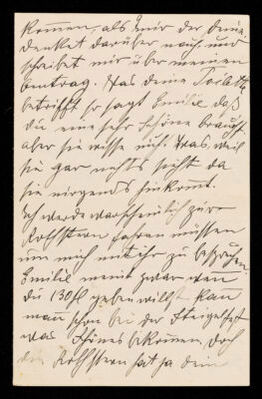 kommen, als mir der deine
denket darüber nach, und
schreibet mir über meinen
Antrag. Was deine Toilette
betrifft so sagt Emilie daß
du eine sehr schöne brauchst
aber sie wisse nicht was, weil
sie gar nichts sieht da
sie nirgends hinkomt.
Ich werde warscheinlich zur
Rothstern fahren müssen
um mich mit ihr zu besprechen.
Emilie meint zwar wen
du 130 fl geben willst kan
man schon bei der
was schönes bekomen, doch
die Rothstern hat ja dein